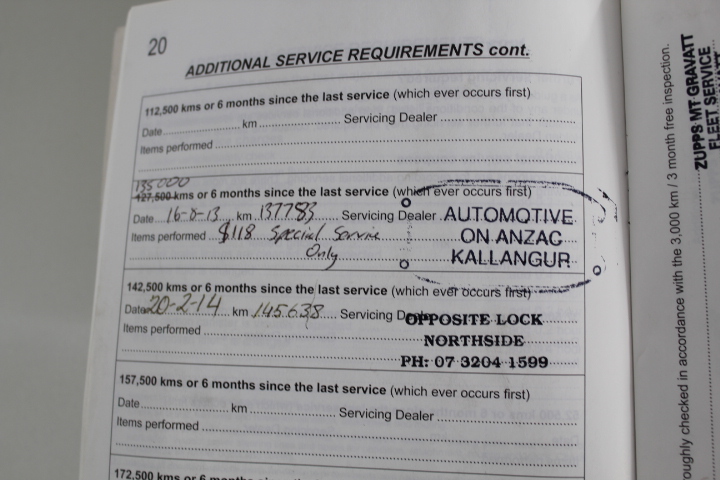 20
ADDITIONAL SERVICE REQUIREMENTS cont.
112,500 kms or 6 months since the last service (which ever occurs first)
Date.................... km .................... Servicing Dealer ....................
Items performed ....................
135000
127,500 kms or 6 months since the last service (which ever occurs first)
Date 16-8-13 km 137783 Servicing Dealer AUTOMOTIVE
Items performed $118 Special Service ON ANZAC
Only KALLANGUR
142,500 kms or 6 months since the last service (which ever occurs first)
Date 20-2-14 km 145638 Servicing OPPOSITE LOCK
Items performed NORTHSIDE
PH: 07 3204 1599
157,500 kms or 6 months since the last service (which ever occurs first)
Date.................... km .................... Servicing Dealer ....................
Items performed ....................
172,500 kms or 6 months
oughly checked in accordance with the 3,000 km / 3 month free inspection.
ZUPPS MT GRAVATT
FLEET SERVICE